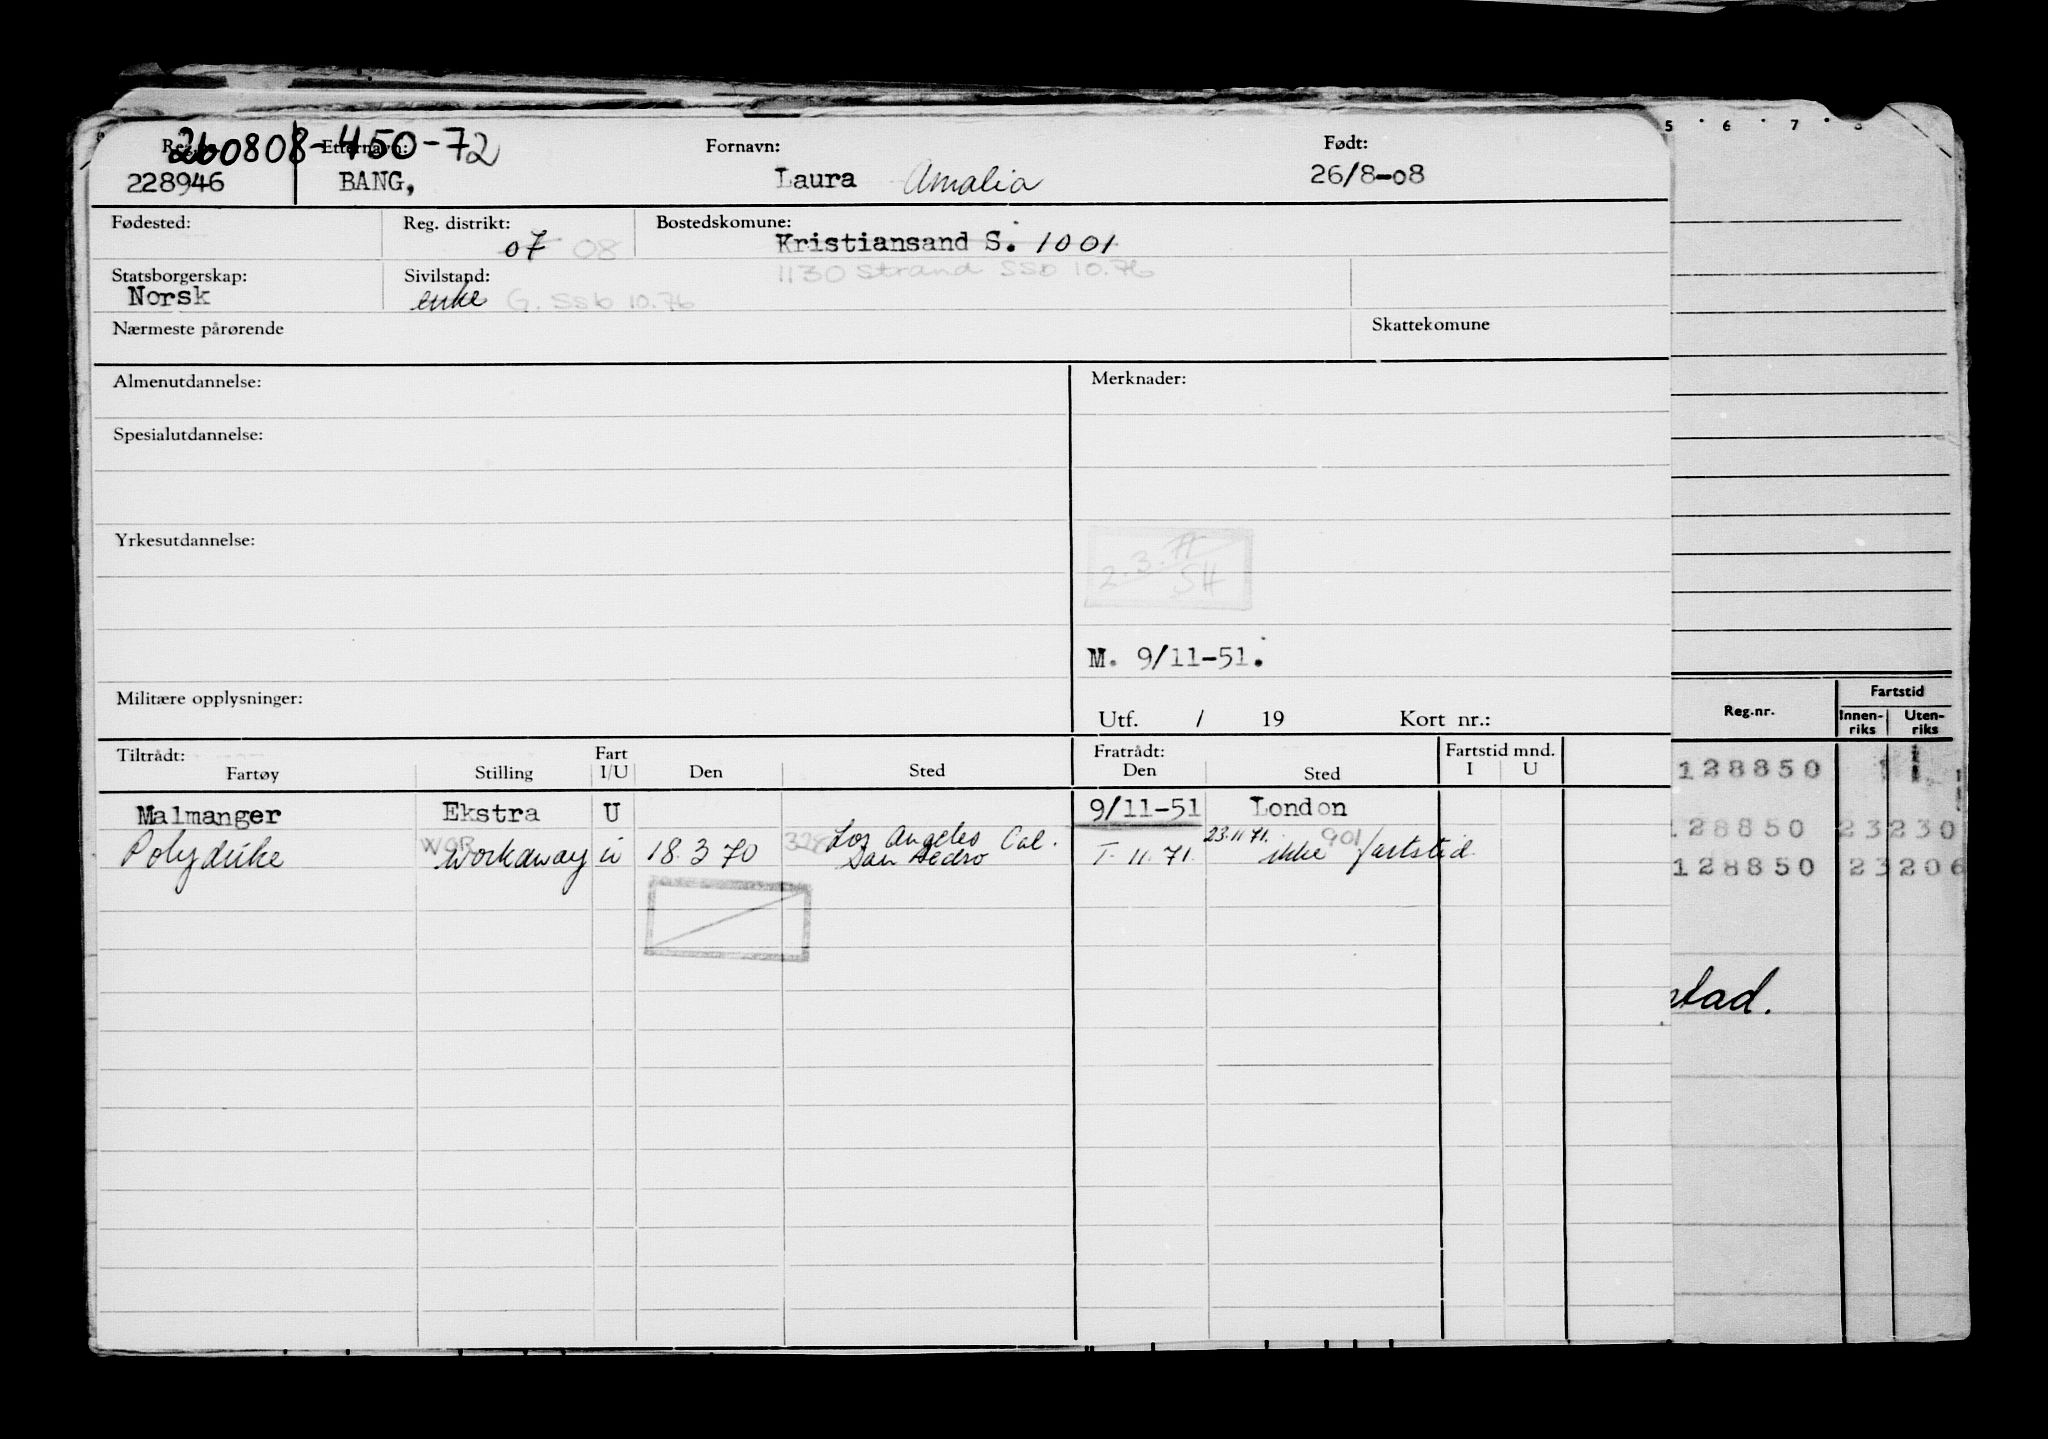 260808-450-72
Etternavn: Fornavn: Født:
228946 BANG, Laura Amalia 26/8-08
Fødested: Reg. distrikt: Bostedskomune:
07 08 Kristiansand S. 1001
1130 Strand SSb 10.76
Statsborgerskap: Sivilstand:
Norsk enke G. SSb 10.76
Nærmeste pårørende Skattekomune
Almenutdannelse: Merknader:
Spesialutdannelse:
Yrkesutdannelse:
2.3.77
SH
M. 9/11-51.
Militære opplysninger:
Utf. / 19 Kort nr.:
Tiltrådt: Fart Fratrådt: Fartstid mnd.
Fartøy Stilling I/U Den Sted Den Sted I U
Malmanger Ekstra U 9/11-51 London
Polyduke WOR workaway u 18.3 70 328 Los Angeles Cal. San Pedro T. 11.71. 23.11 71. 901 ikke fartstid
5 6 7
Reg.nr. Fartstid
Innen-riks Uten-riks
128850 1 1
128850 23 230
128850 23 206
stad.